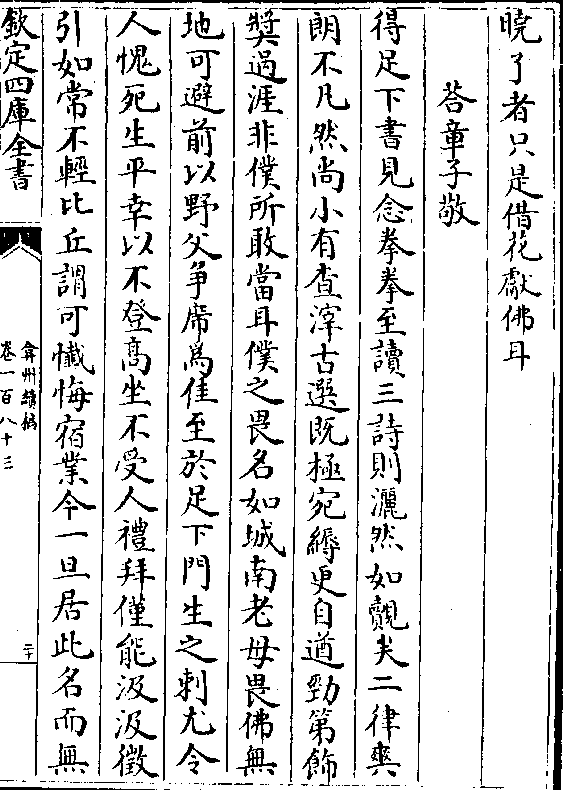 曉了者只是借花獻佛耳
荅章子敬
得足下書見念拳拳至讀三詩則灑然如覿矣二律爽
朗不凡然尚小有查滓古選既極宛縟更自遒勁第飾
奬過涯非僕所敢當耳僕之畏名如城南老母畏佛無
地可避前以野父爭席爲佳至於足下門生之刺尤令
人愧死生平幸以不登高坐不受人禮拜僅能汲汲徵
引如常不輕比丘謂可懺悔宿業今一旦居此名而無
欽定四庫全書
弇州續稿
卷一百八十三
二十